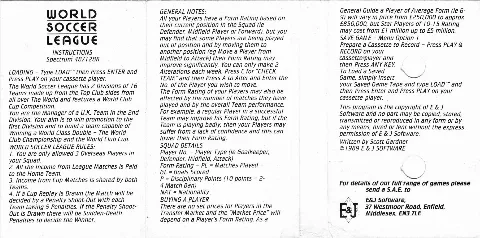 WORLD
SOCCER
LEAGUE
INSTRUCTIONS
Spectrum 48/128K
LOADING - Type LOAD"" then Press ENTER and
Press PLAY on your cassette player.
The World Soccer League has 4 divisions of 16
Teams made up from the Top Club sides from
all over The World and features a World Club
Cup Competition.
You are the Manager of a U.K. Team in the End
Division. Your aim is to win promotion to the
first Division and to build a team capable of
Winning a World Class Double - The World
Club Championship and the World Club Cup.
WORLD SOCCER LEAGUE RULES:
1. You are only allowed 3 Overseas Players in
your Squad.
2. All the Income from League Matches is Paid
to the Home Team.
3. Income from Cup Matches is shared by both
Teams.
4. If a Cup Replay is Drawn the Match will be
decided by a Penalty Shoot Out with each
Team taking 5 Penalties. If the Penalty Shoot-
Out is Drawn there will be Sudden-Death
Penalties to decide the Winner.
GENERAL NOTES:
All your Players have a Form Rating based on
their current position in the Squad (ie
Defender, Midfield Player or Forward), but you
may find that some Players are being played
out of position and by moving them to
another position (eg Move a Player from
Midfield to Attack) their Form Rating may
improve significantly. You can only make 2
Alterations each week. Press C for "CHECK
TEAM" and then Press A to Alter and Enter the
No of the Player you wish to move.
The Form Rating of your Players may also be
affected by the number of matches they have
played and by the overall Team performance.
For example, a regular Player in a successful
Team may improve his Form Rating, but if the
Team is playing badly, then your Players may
suffer from a lack of confidence and this can
lower their Form Rating.
SQUAD DETAILS
Player No. - Player Type (ie Goalkeeper,
Defender, Midfield, Attack)
Form Rating - PL = Matches Played
GL = Goals Scored
P = Disciplinary Points (10 points - 2-
4 Match Ban)
NAT = Nationality
BUYING A PLAYER
There are no set prices for Players in the
Transfer Market and the "Market Price" will
depend on a Player's Form Rating. As a
General Guide a Player of Average Form (ie 6-
9) will vary in price from £250,000 to approx
£850,000, but Star Players of 10-15 Rating
may cost from £1 million up to £5 million.
SAVE GAME - Menu Option 7
Prepare a Cassette to Record - Press PLAY &
RECORD on your
cassette player and
then Press ANY KEY.
To Load a Saved
Game, simply insert
your Saved Game Tape and type LOAD"" and
then Press Enter and Press PLAY on your
cassette player.
This program is the copyright of E & J
Software and no part may be copied, stored,
transmitted or reproduced in any form or by
any means, hired or lent without the express
permission of E & J Software.
Written by Scott Gardner
© 1989 E & J SOFTWARE
For details of our full range of games please
send a S.A.E. to
E&J
E&J Software,
37 Westmoor Road, Enfield,
Middlesex, EN3 7LE